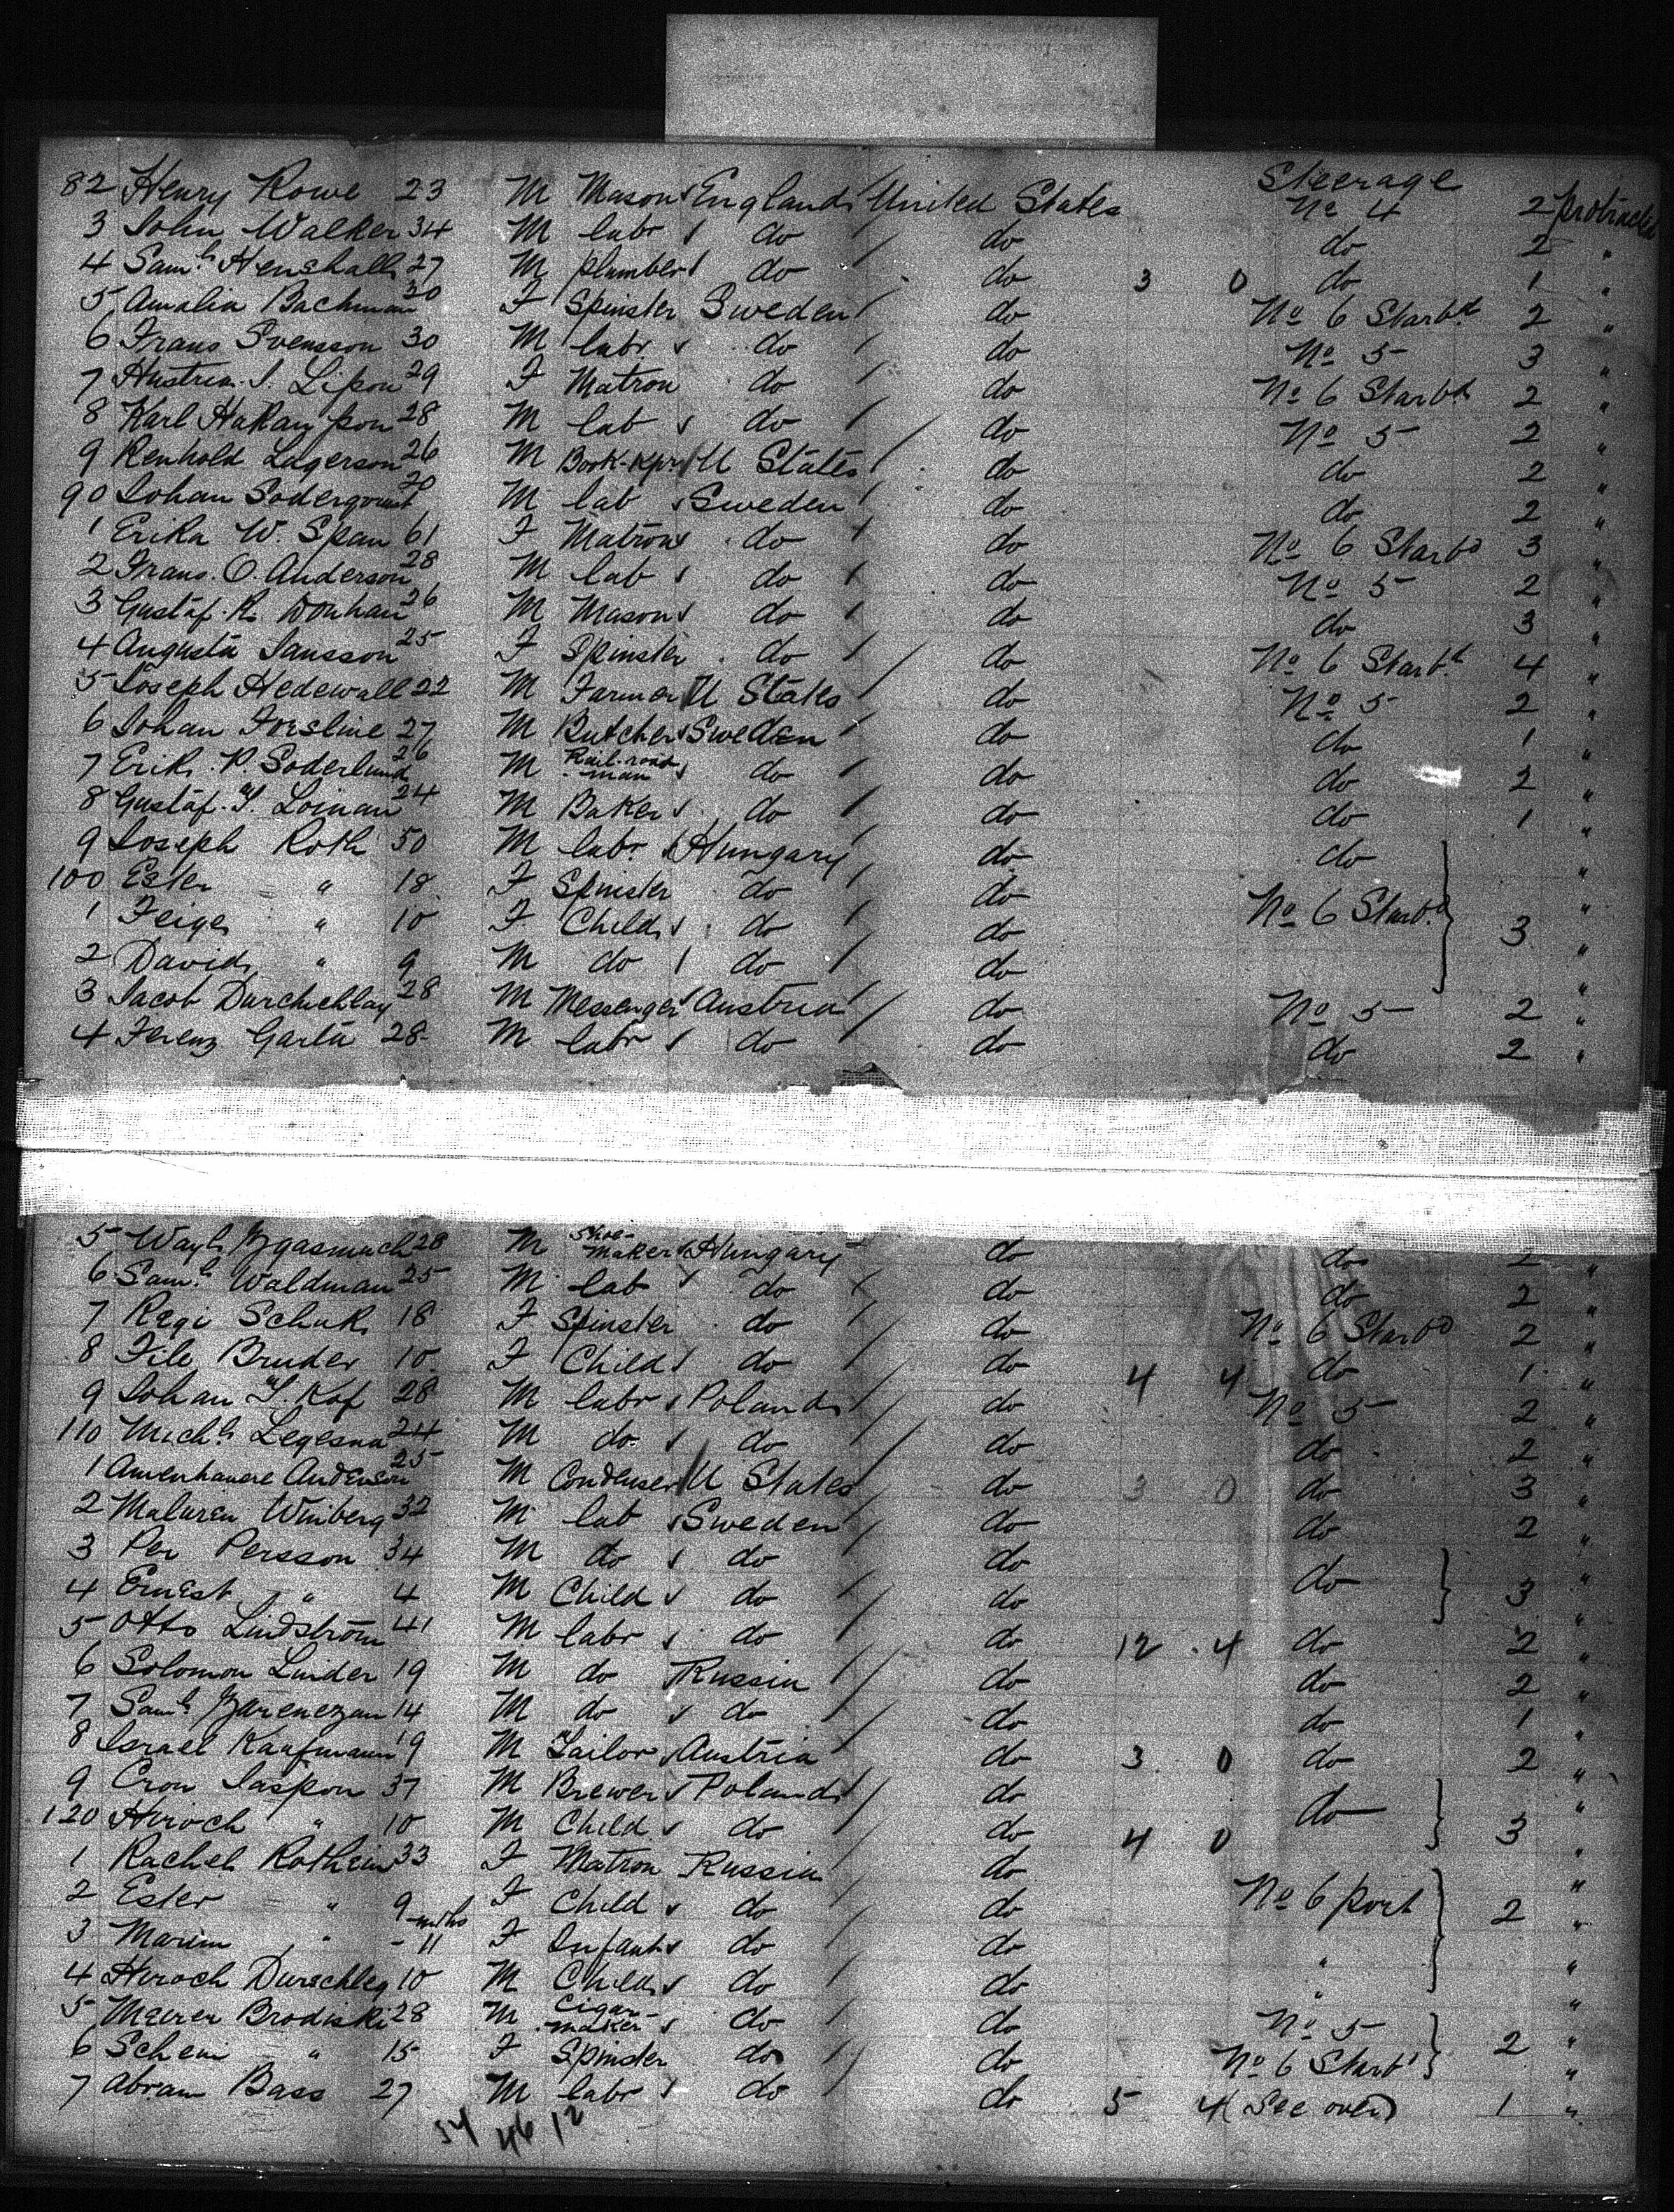 Steerage
82 Henry Rowe 23 M Mason England United States No 4 2 protracted
3 John Walker 34 M labr do do do 2 "
4 Saml Henshall 27 M plumber do do 3 0 do 1 "
5 Amalia Bachman 30 F Spinster Sweden do No 6 Starbd 2 "
6 Frans Svensson 30 M labr do do No 5 3 "
7 S. Lipon 29 F Matron do do No 6 Starbd 2 "
8 Karl Hakanpson 28 M lab do do No 5 2 "
9 Renhold Lagerson 26 M Book-kpr U States do do 2 "
90 Johan Soderqvist 20 M lab Sweden do do 2 "
1 Erika W. Span 61 F Matron do do No 6 Starbd 3 "
2 Frans. O. Anderson 28 M lab do do No 5 2 "
3 Gustaf. R. 26 M Mason do do do 3 "
4 Augusta Jansson 25 F Spinster do do No 6 Starbd 4 "
5 Joseph Hedewall 22 M Farmer U States do No 5 2 "
6 Johan Forsline 27 M Butcher Sweden do do 1 "
7 Erik. P. Soderlund 26 M Rail-road-man do do do 2 "
8 Gustaf. Y. Loinan 24 M Baker do do do 1 "
9 Joseph Roth 50 M labr Hungary do do "
100 Ester " 18 F Spinster do do No 6 Starbd "
1 Feige " 10 F Child do do 3 "
2 David " 9 M do do do "
3 Jacob 28 M Messenger Austria do No 5 2 "
4 Ferenz Garta 28 M labr do do do 2 "
5 28 M Shoe-maker Hungary do do "
6 Saml Waldman 25 M lab do do do 2 "
7 Regi Schuk 18 F Spinster do do No 6 Starbd 2 "
8 File Bruder 10 F Child do do 4 4 do 1 "
9 Johan Y. Kof 28 M labr Poland do No 5 2 "
110 Michl Legesna 24 M do do do do 2 "
1 Anderson 25 M Condenser U States do 3 0 do 3 "
2 Winberg 32 M lab Sweden do do 2 "
3 Per Persson 34 M do do do do "
4 Ernest " 4 M Child do do 3 "
5 Otto Lindstrom 41 M labr do do 12 . 4 do 2 "
6 Solomon Linder 19 M do Russia do do 2 "
7 Saml 14 M do do do do 1 "
8 Israel Kaufmann 19 M Tailor Austria do 3 0 do 2 "
9 Cron Jaspon 37 M Brewer Poland do do "
120 Hiroch " 10 M Child do do 4 0 3 "
1 Rachel Rothein 33 F Matron Russia do "
2 Ester " 9 F Child do do No 6 port 2 "
3 Marim " - 11 mths F Infant do do "
4 Hiroch Durschleg 10 M Child do do " "
5 Meerer Brodiski 28 M Cigar-maker do do No 5 "
6 Schein " 15 F Spinster do do No 6 Starbd 2 "
7 Abram Bass 27 M labr do do 5 4 (See over) 1 "
54 46 12